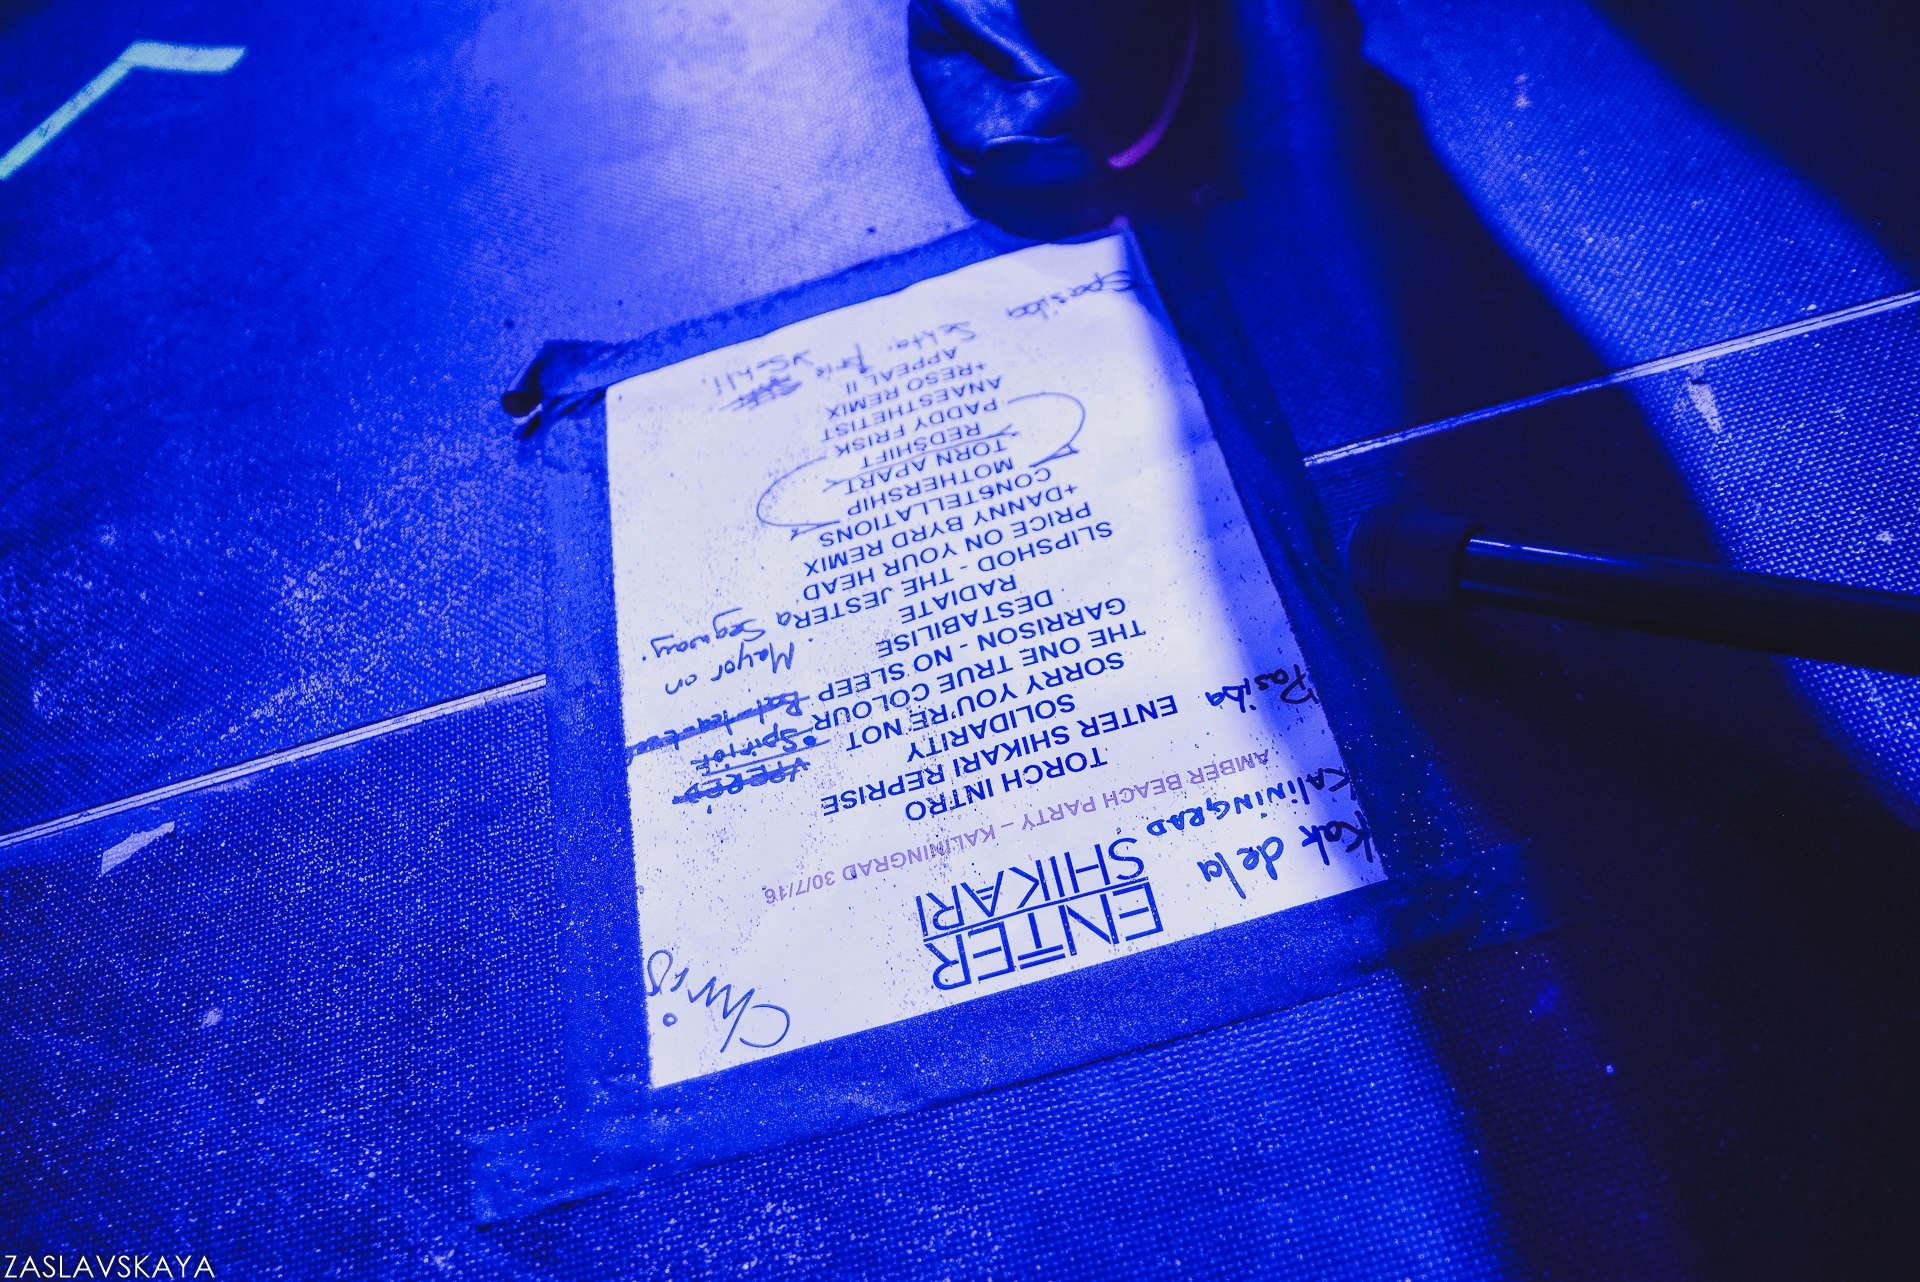 Chris
ENTER
SHIKARI
Kak dela
KALININGRAD
AMBER BEACH PARTY – KALININGRAD 30/7/16
Pasiba
TORCH INTRO
ENTER SHIKARI REPRISE
SOLIDARITY
SORRY YOU'RE NOT
THE ONE TRUE COLOUR
GARRISON - NO SLEEP
DESTABILISE
RADIATE
SLIPSHOD - THE JESTER
PRICE ON YOUR HEAD
+DANNY BYRD REMIX
CONSTELLATIONS
MOTHERSHIP
TORN APART
REDSHIFT
PADDY FRISK
ANAESTHETIST
+RESO REMIX
APPEAL II
Mayor on
a Segway.
Spasiba
ZASLAVSKAYA